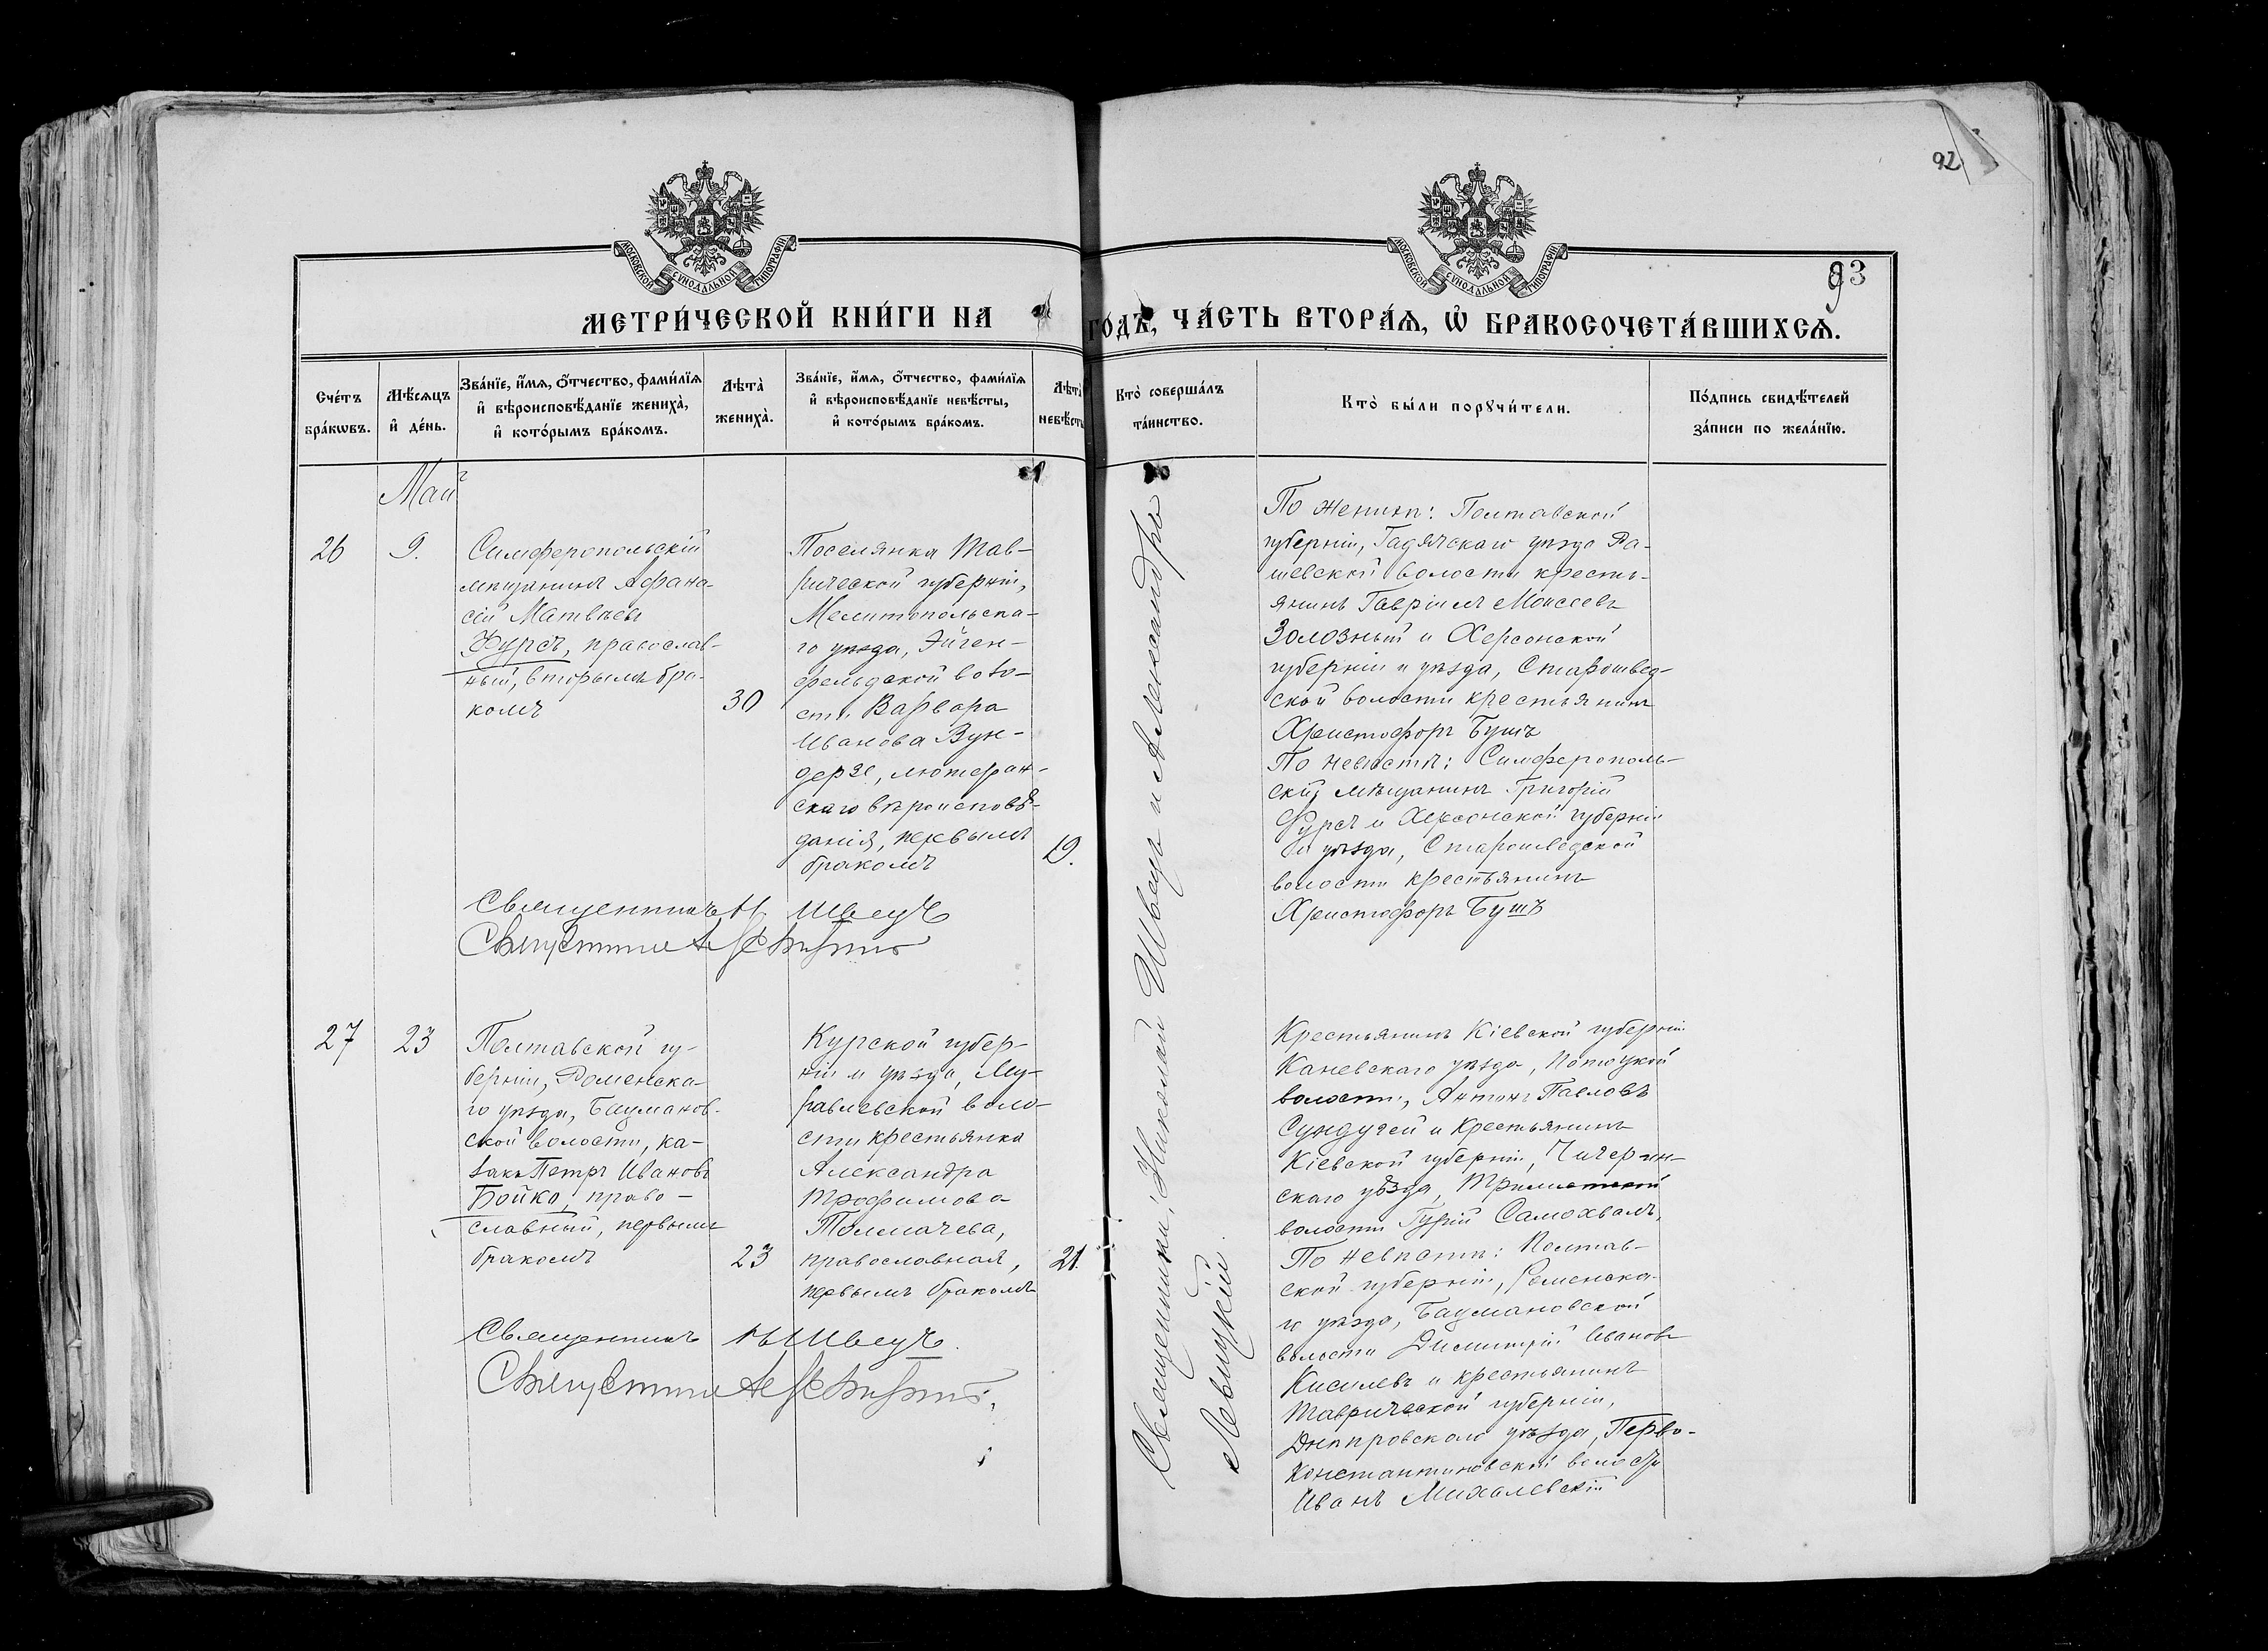 92
93
МОСКОВСКОЙ СѴНОДАЛЬНОЙ ТИПОГРАФІИ
МОСКОВСКОЙ СѴНОДАЛЬНОЙ ТИПОГРАФІИ
МЕТРИ́ЧЕСКОЙ КНИ́ГИ НА ГОДЪ, ЧА́СТЬ ВТОРА́Ѧ, Ѡ҆ БРАКОСОЧЕТА́ВШИХСѦ.
Сче́тъ
бра́кѡвъ.
Мѣ́сѧцъ
и҆ де́нь.
Зва́нїе, и҆́мѧ, ѻ҆́тчество, фами́лїѧ
и҆ вѣроисповѣ́данїе жениха̀,
и҆ кото́рымъ бра́комъ.
Лѣта̀
жениха̀.
Зва́нїе, и҆́мѧ, ѻ҆́тчество, фами́лїѧ
и҆ вѣроисповѣ́данїе невѣ́сты,
и҆ кото́рымъ бра́комъ.
Лѣта̀
невѣ́сты
Кто̀ соверша́лъ
та́инство.
Кто̀ бы́ли порꙋчи́тели.
По́дпись свидѣ́телей
за́писи по жела́нїю.
Май
26
9.
Симферопольскій
мѣщанинъ Афана-
сій Матвѣевъ
Фурсъ, православ-
ный, вторымъ бра-
комъ
30
Поселянка Тав-
рической губерніи,
Мелитопольска-
го уѣзда, Эйген-
фельдской воло-
сти Варвара
Иванова Вун-
дерзе, лютеран-
скаго вѣроисповѣ-
данія, первымъ
бракомъ
19.
Священникъ Н Швецъ
Священники: Николай Швецъ и Александръ
Левицкій.
По женихѣ: Полтавской
губерніи, Гадячскаго уѣзда Ра-
шевской волости кресть-
янинъ Гавріилъ Моисеевъ
Золозный и Херсонской
губерніи и уѣзда, Старошвед-
ской волости крестьянинъ
Христофоръ Бушъ
По невѣстѣ: Симферополь-
скій мѣщанинъ Григорій
Фурсъ и Херсонской губерніи
и уѣзда, Старошведской
волости крестьянинъ
Христофоръ Бушъ
27
23
Полтавской гу-
берніи, Роменска-
го уѣзда, Бацманов-
ской волости, ка-
закъ Петръ Ивановъ
Бойко, право-
славный, первымъ
бракомъ
23
Курской губер-
ніи и уѣзда, Му-
равлевской воло-
сти крестьянка
Александра
Трофимова
Толмачева,
православная,
первымъ бракомъ
21.
Священникъ Н Швецъ.
Крестьянинъ Кіевской губерніи
Каневскаго уѣзда, Потоцкой
волости, Антонъ Павловъ
и крестьянинъ
Кіевской губерніи, Чигирин-
скаго уѣзда,
волости Гурій Самохвалъ,
По невѣстѣ: Полтав-
ской губерніи, Роменска-
го уѣзда, Бацмановской
волости Димитрій Ивановъ
Киселевъ и крестьянинъ
Таврической губерніи,
Днѣпровскаго уѣзда, Перво-
Константиновской волости
Иванъ Михалевскій